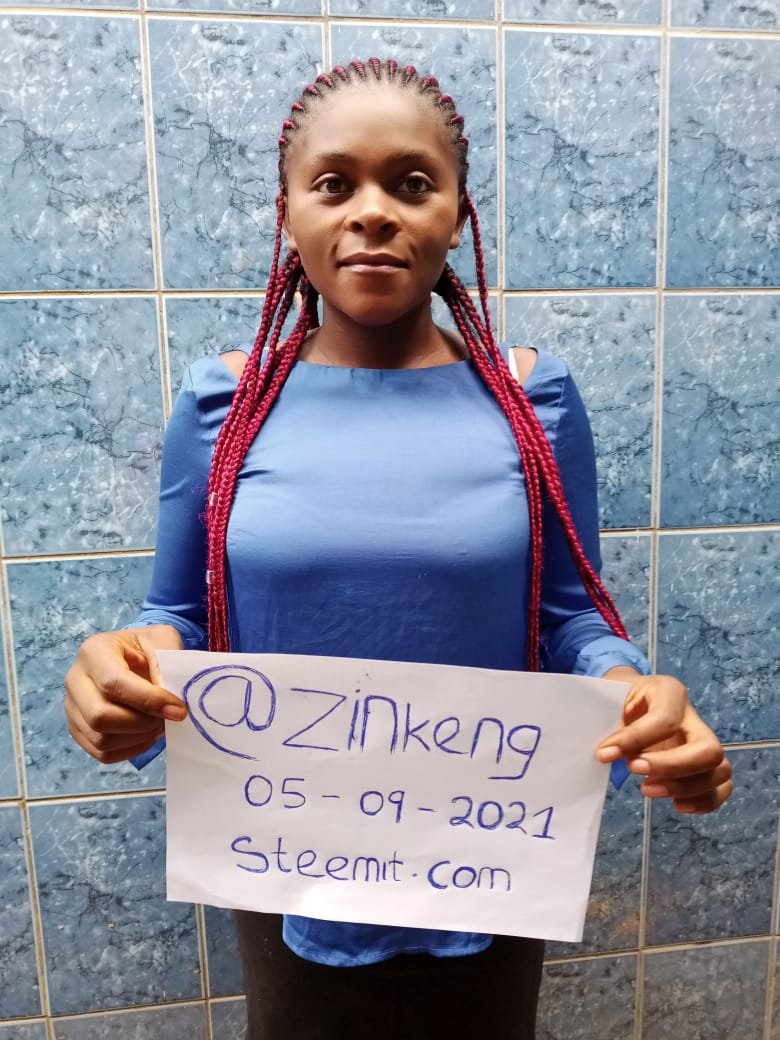 @zinkeng
05-09-2021
Steemit.com